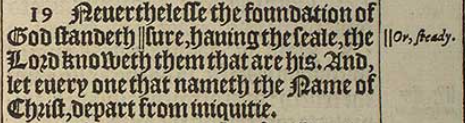 19 Neuerthelesse the foundation of
God standeth ||sure, hauing the seale, the
Lord knoweth them that are his. And,
let euery one that nameth the Name of
Christ, depart from iniquitie.
||Or, steady.